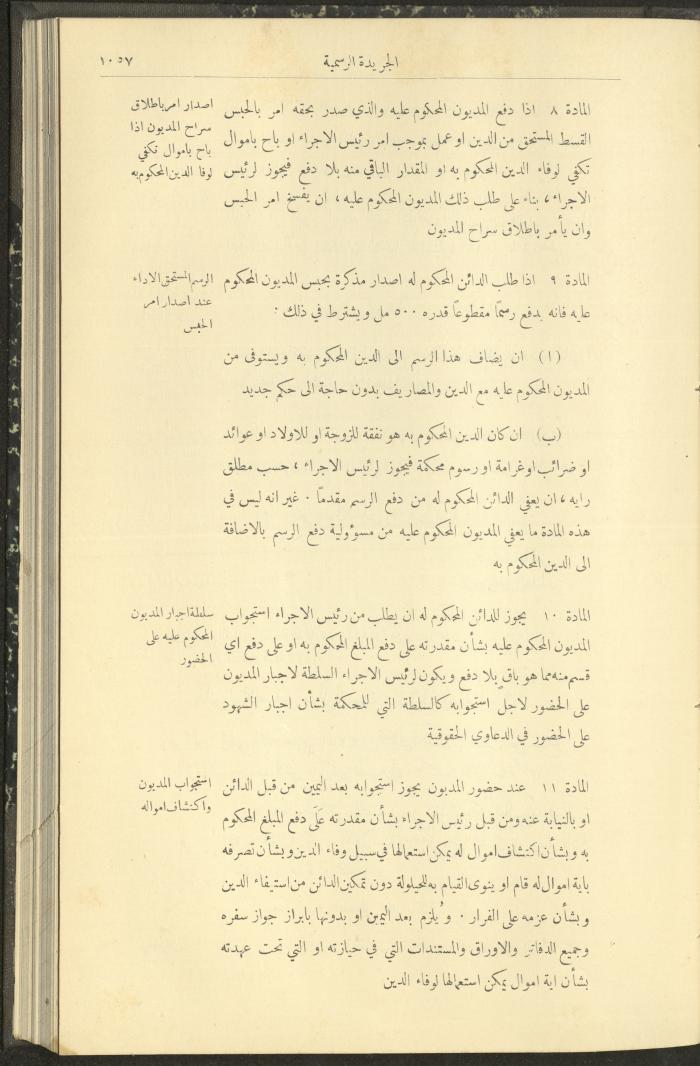 الجريدة الرسمية
١٠٥٧
المادة ٨ اذا دفع المديون المحكوم عليه والذي صدر بحقه امر بالحبس
القسط المستحق من الدين او عمل بموجب امر رئيس الاجراء او باح باموال
تكفي لوفاء الدين المحكوم به او المقدار الباقي منه بلا دفع فيجوز لرئيس
الاجراء، بناء على طلب ذلك المديون المحكوم عليه، ان يفسخ امر الحبس
وان يأمر باطلاق سراح المديون
اصدار امر باطلاق
سراح المديون اذا
باح باموال تكفي
لوفا الدين المحكوم به
المادة ٩ اذا طلب الدائن المحكوم له اصدار مذكرة بحبس المديون المحكوم
عليه فانه يدفع رسمًا مقطوعًا قدره ٥٠٠ مل ويشترط في ذلك :
الرسم المستحق الاداء
عند اصدار امر
الحبس
(ا) ان يضاف هذا الرسم الى الدين المحكوم به ويستوفى من
المديون المحكوم عليه مع الدين والمصاريف بدون حاجة الى حكم جديد
(ب) ان كان الدين المحكوم به هو نفقة للزوجة او للاولاد او عوائد
او ضرائب او غرامة او رسوم محكمة فيجوز لرئيس الاجراء، حسب مطلق
رايه، ان يعفي الدائن المحكوم له من دفع الرسم مقدمًا . غير انه ليس في
هذه المادة ما يعفي المديون المحكوم عليه من مسؤولية دفع الرسم بالاضافة
الى الدين المحكوم به
المادة ١٠ يجوز للدائن المحكوم له ان يطلب من رئيس الاجراء استجواب
المديون المحكوم عليه بشأن مقدرته على دفع المبلغ المحكوم به او على دفع اي
قسم منه مما هو باقٍ بلا دفع ويكون لرئيس الاجراء السلطة لاجبار المديون
على الحضور لاجل استجوابه كالسلطة التي للمحكمة بشأن اجبار الشهود
على الحضور في الدعاوي الحقوقية
سلطة اجبار المديون
المحكوم عليه على
الحضور
المادة ١١ عند حضور المديون يجوز استجوابه بعد اليمين من قبل الدائن
او بالنيابة عنه ومن قبل رئيس الاجراء بشأن مقدرته عَلَى دفع المبلغ المحكوم
به وبشأن اكتشاف اموال له يمكن استعمالها في سبيل وفاء الدين وبشأن تصرفه
باية اموال له قام او ينوى القيام به للحيلولة دون تمكين الدائن من استيفاء الدين
وبشأن عزمه على الفرار . ويُلزم بعد اليمين او بدونها بابراز جواز سفره
وجميع الدفاتر والاوراق والمستندات التي في حيازته او التي تحت عهدته
بشأن اية اموال يمكن استعمالها لوفاء الدين
استجواب المديون
واكتشاف امواله